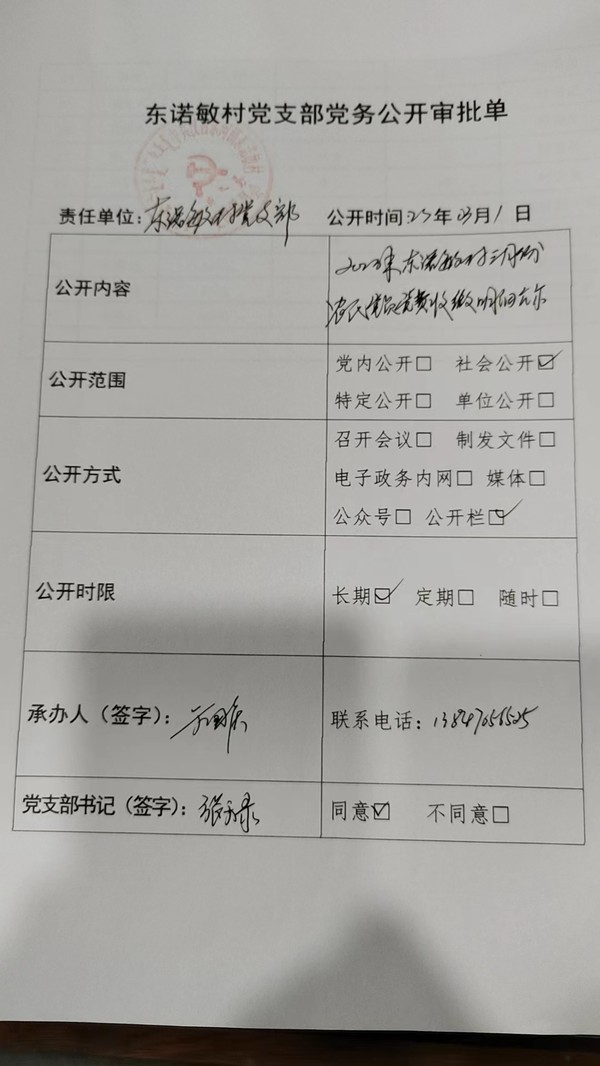 东诺敏村党支部党务公开审批单
责任单位:东诺敏村党支部 公开时间:25年03月1日
公开内容
东诺敏村三月份
农民党员党费收缴明细公示
公开范围
党内公开□ 社会公开☑
特定公开□ 单位公开□
公开方式
召开会议□ 制发文件□
电子政务内网□ 媒体□
公众号□ 公开栏☑
公开时限
长期☑ 定期□ 随时□
承办人(签字):
联系电话:
党支部书记(签字):
同意☑ 不同意□